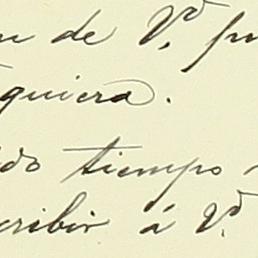 de V.d
quiera.
tiempo
cribir á V.d